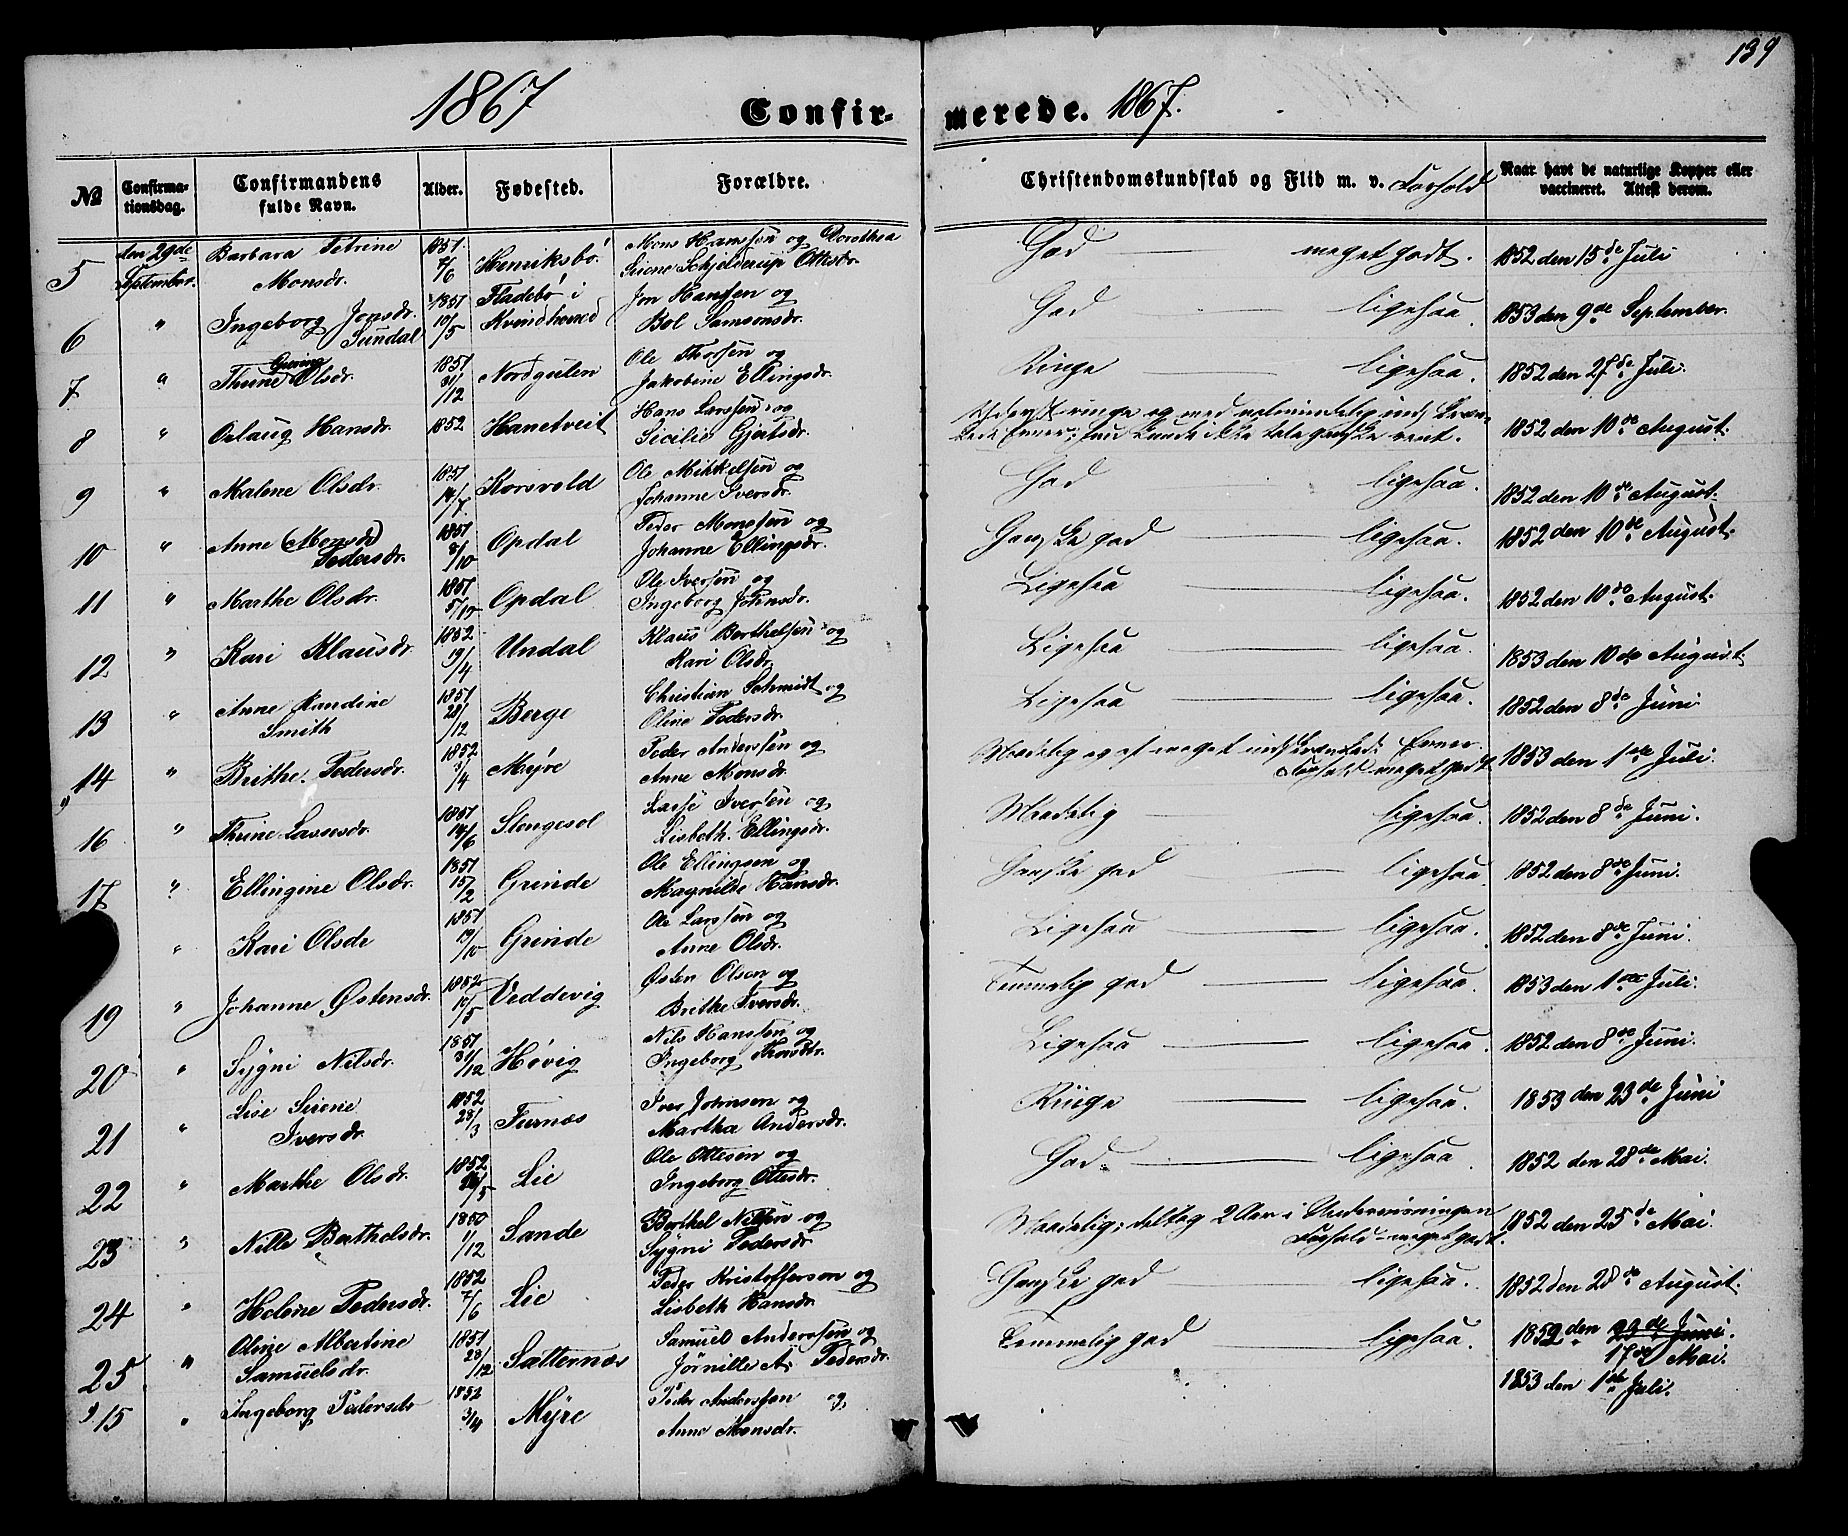 139
1867 Confir- merede. 1867.
№ Confirma-tionsdag. Confirmandens fulde Navn. Alder. Fødested. Forældre. Christendomskundskab og Flid m. v. Forhold Naar havt de naturlige Kopper eller vaccineret. Attest derom.
5 den 29de September. Barbara Petrine Monsdr. 1851 7/6 Henriksbø. Mons Hanssen og Dorothea Sirene Schjelderup Ottesdr. God — meget godt. 1852 den 15de Juli
6 " Ingeborg Jonsdr. Sundal 1851 10/5 Fladebø i Kvindherred Jon Hanssen og Bol Samsonsdr. God — ligesaa. 1853 den 9de September.
7 " Thrine Olsdr. 1851 31/12 Nordgulen Ole Thorsen og Jakobine Ellingsdr. Ringe — ligesaa. 1852 den 27de Juli.
8 " Oelaug Hansdr. 1852 Hanetveit Hans Larssen og Sicilie Gjertsdr. Yderst ringe og med ualmindelig indskrænkede Evner; hun kunde ikke tale ganske rent. 1852 den 10de August.
9 " Malene Olsdr. 1851 14/7. Korsvold Ole Mikkelsen og Johanne Iversdr. God — ligesaa. 1852 den 10de August.
10 " Anne (Monsd) Pedersdr. 1851 8/10 Opdal Peder Monssen og Johanne Ellingsdr. Ganske god — ligesaa. 1852 den 10de August.
11 " Marthe Olsdr. 1851 5/12 Opdal Ole Iversen og Ingeborg Johnsdr. Ligesaa — ligesaa. 1852 den 10de August.
12 " Kari Klausdr. 1852 19/4 Undal Klaus Berthelsen og Kari Olsdr. Ligesaa — ligesaa. 1853 den 10de August
13 " Anne Randine Smith 1851 28/12 Berge Christian Schmidt og Oline Pedersdr. Ligesaa — ligesaa. 1852 den 8de Juni
14 " Brithe Pedersdr. 1852 3/4 Myre Peder Anderssen og Anne Monsdr. Maadelig og af meget indskrænkede Evner. Forhold meget godt. 1853 den 1ste Juli.
16 " Thrine Lassesdr. 1851 14/6 Stengesol Lasse Iversen og Lisbeth Ellingsdr. Maadelig — ligesaa. 1852 den 8de Juni.
17 " Ellingine Olsdr. 1851 15/2 Grinde Ole Ellingsen og Magnilde Hansdr. Ganske god — ligesaa 1852 den 8de Juni.
" Kari Olsdr 1851 19/10 Grinde Ole Larssen og Anne Olsdr. Ligesaa — ligesaa. 1852 den 8de Juni.
19 " Johanne Østensdr. 1852 10/5 Veddevig Østen Olson og Brithe Iversdr. Temmelig god — ligesaa. 1853 den 1ste Juli.
20 " Sygni Nilsdr. 1851 31/12 Høvig Nils Hanssen og Ingeborg Thordtr. Ligesaa — ligesaa. 1852 den 8de Juni.
21 " Lise Sirene Iversdr. 1852 28/3 Furnæs Iver Johnsen og Martha Andersdr. Ringe — ligesaa. 1853 den 23de Juni
22 " Marthe Olsdr. 1852 /5 Lie Ole Ottesen og Ingeborg Ottesdr. God — ligesaa. 1852 den 28de Mai.
23 " Nille Berthelsdr. 1850 1/12 Sande Berthel Nilsen og Sygni Pedersdr. Maadelig; deltog 2 Aar i Underviisningen Forhold meget godt. 1852 den 25de Mai.
24 " Helene Pedersdr. 1852 7/6 Lie Peder Kristofferson og Lisbeth Hansdr. Ganske god — ligesaa. 1852 den 28de August.
25 " Oline Albertine Samuelsdr. 1851 28/12 Sætternæs Samuel Anderssen og Jørnille A. Pedersdr. Temmelig god — ligesaa. 1852 den 23de Juni. 17de Mai.
15 " Ingeborg Pedersdr 1852 3/4 Myre Peder Anderssen og Anne Monsdr. 1853 den 1ste Juli.